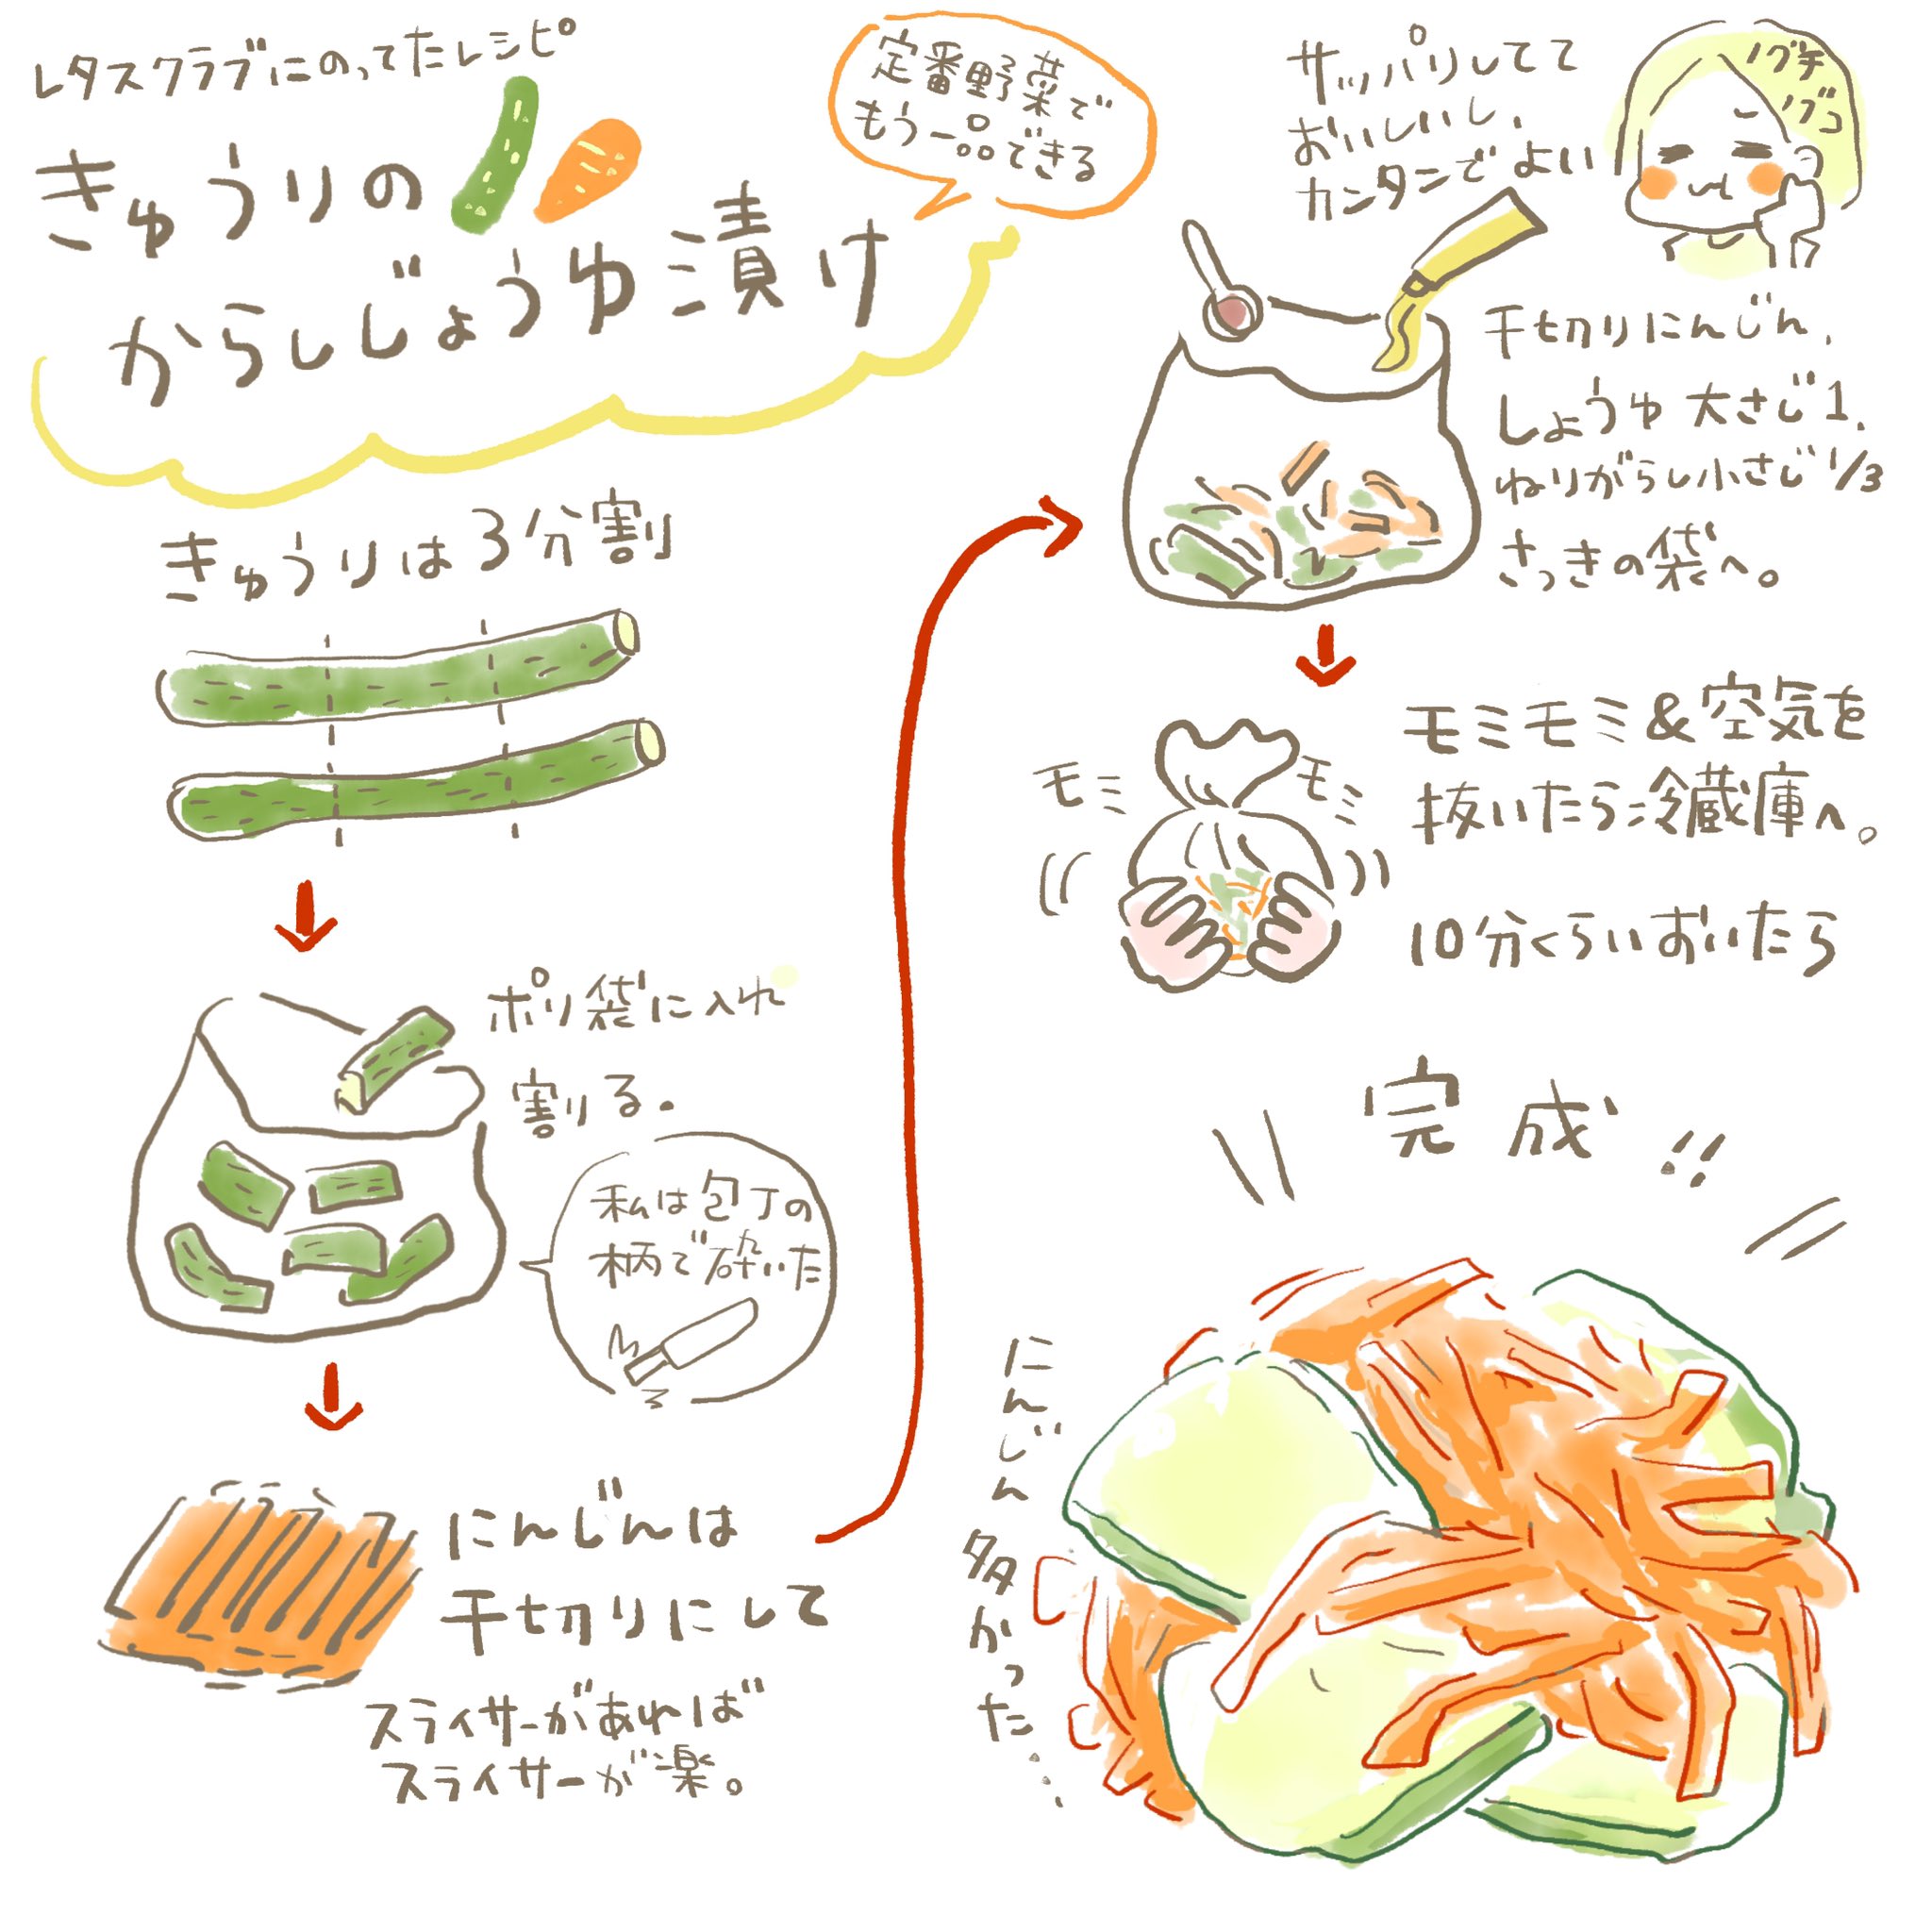 レタスクラブにのってたレシピ
きゅうりの
からしじょうゆ漬け
定番野菜で
もう一品できる
きゅうりは3分割
ポリ袋に入れ
割る.
私は包丁の
柄で砕いた
にんじんは
千切りにして
スライサーがあれば
スライサーが楽。
サッパリしてて
おいしいし、
カンタンでよい
ノグチ
ノブコ
千切りにんじん、
しょうゆ 大さじ1、
ねりがらし小さじ1/3
さっきの袋へ。
モミ
モミ
モミモミ&空気を
抜いたら冷蔵庫へ。
10分くらいおいたら
完成!!
にんじん多かった…